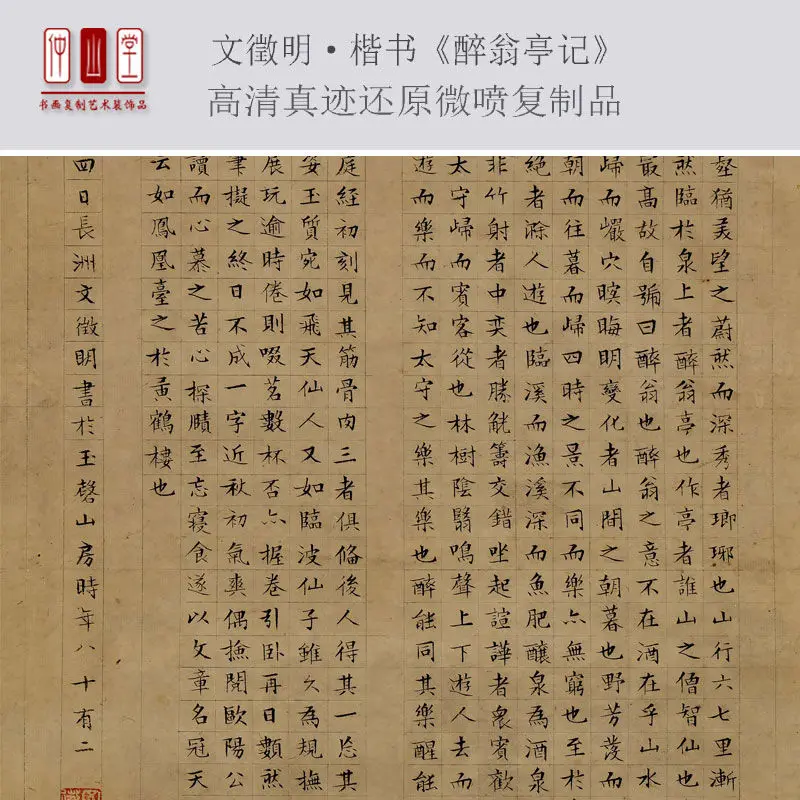 仲山堂
书画复制艺术装饰品
文徵明·楷书《醉翁亭记》
高清真迹还原微喷复制品
壑猶美望之蔚然而深秀者瑯琊也山行六七里漸
然臨於泉上者醉翁亭也作亭者誰山之僧智仙也
最高故自號曰醉翁也醉翁之意不在酒在乎山水
歸而巖穴暝晦明變化者山間之朝暮也野芳發而
朝而往暮而歸四時之景不同而樂亦無窮也至於
絶者滁人遊也臨溪而漁溪深而魚肥釀泉為酒泉
非竹射者中奕者勝觥籌交錯坐起諠譁者衆賓歡
太守歸而賓客從也林樹陰翳鳴聲上下遊人去而
遊而樂而不知太守之樂其樂也醉能同其樂醒能
庭經初刻見其筋骨肉三者俱俻後人得其一其
姿玉質宛如飛天仙人又如臨波仙子雖久為規撫
展玩逾時倦則啜茗數杯否亦握卷引卧再日數然
筆擬之終日不成一字近秋初氣爽偶撿閱歐陽公
讀而心慕之苦心探賾至忘寢食遂以文章名冠天
云如鳳凰臺之於黃鶴樓也
四日長洲文徵明書於玉磬山房時年八十有二